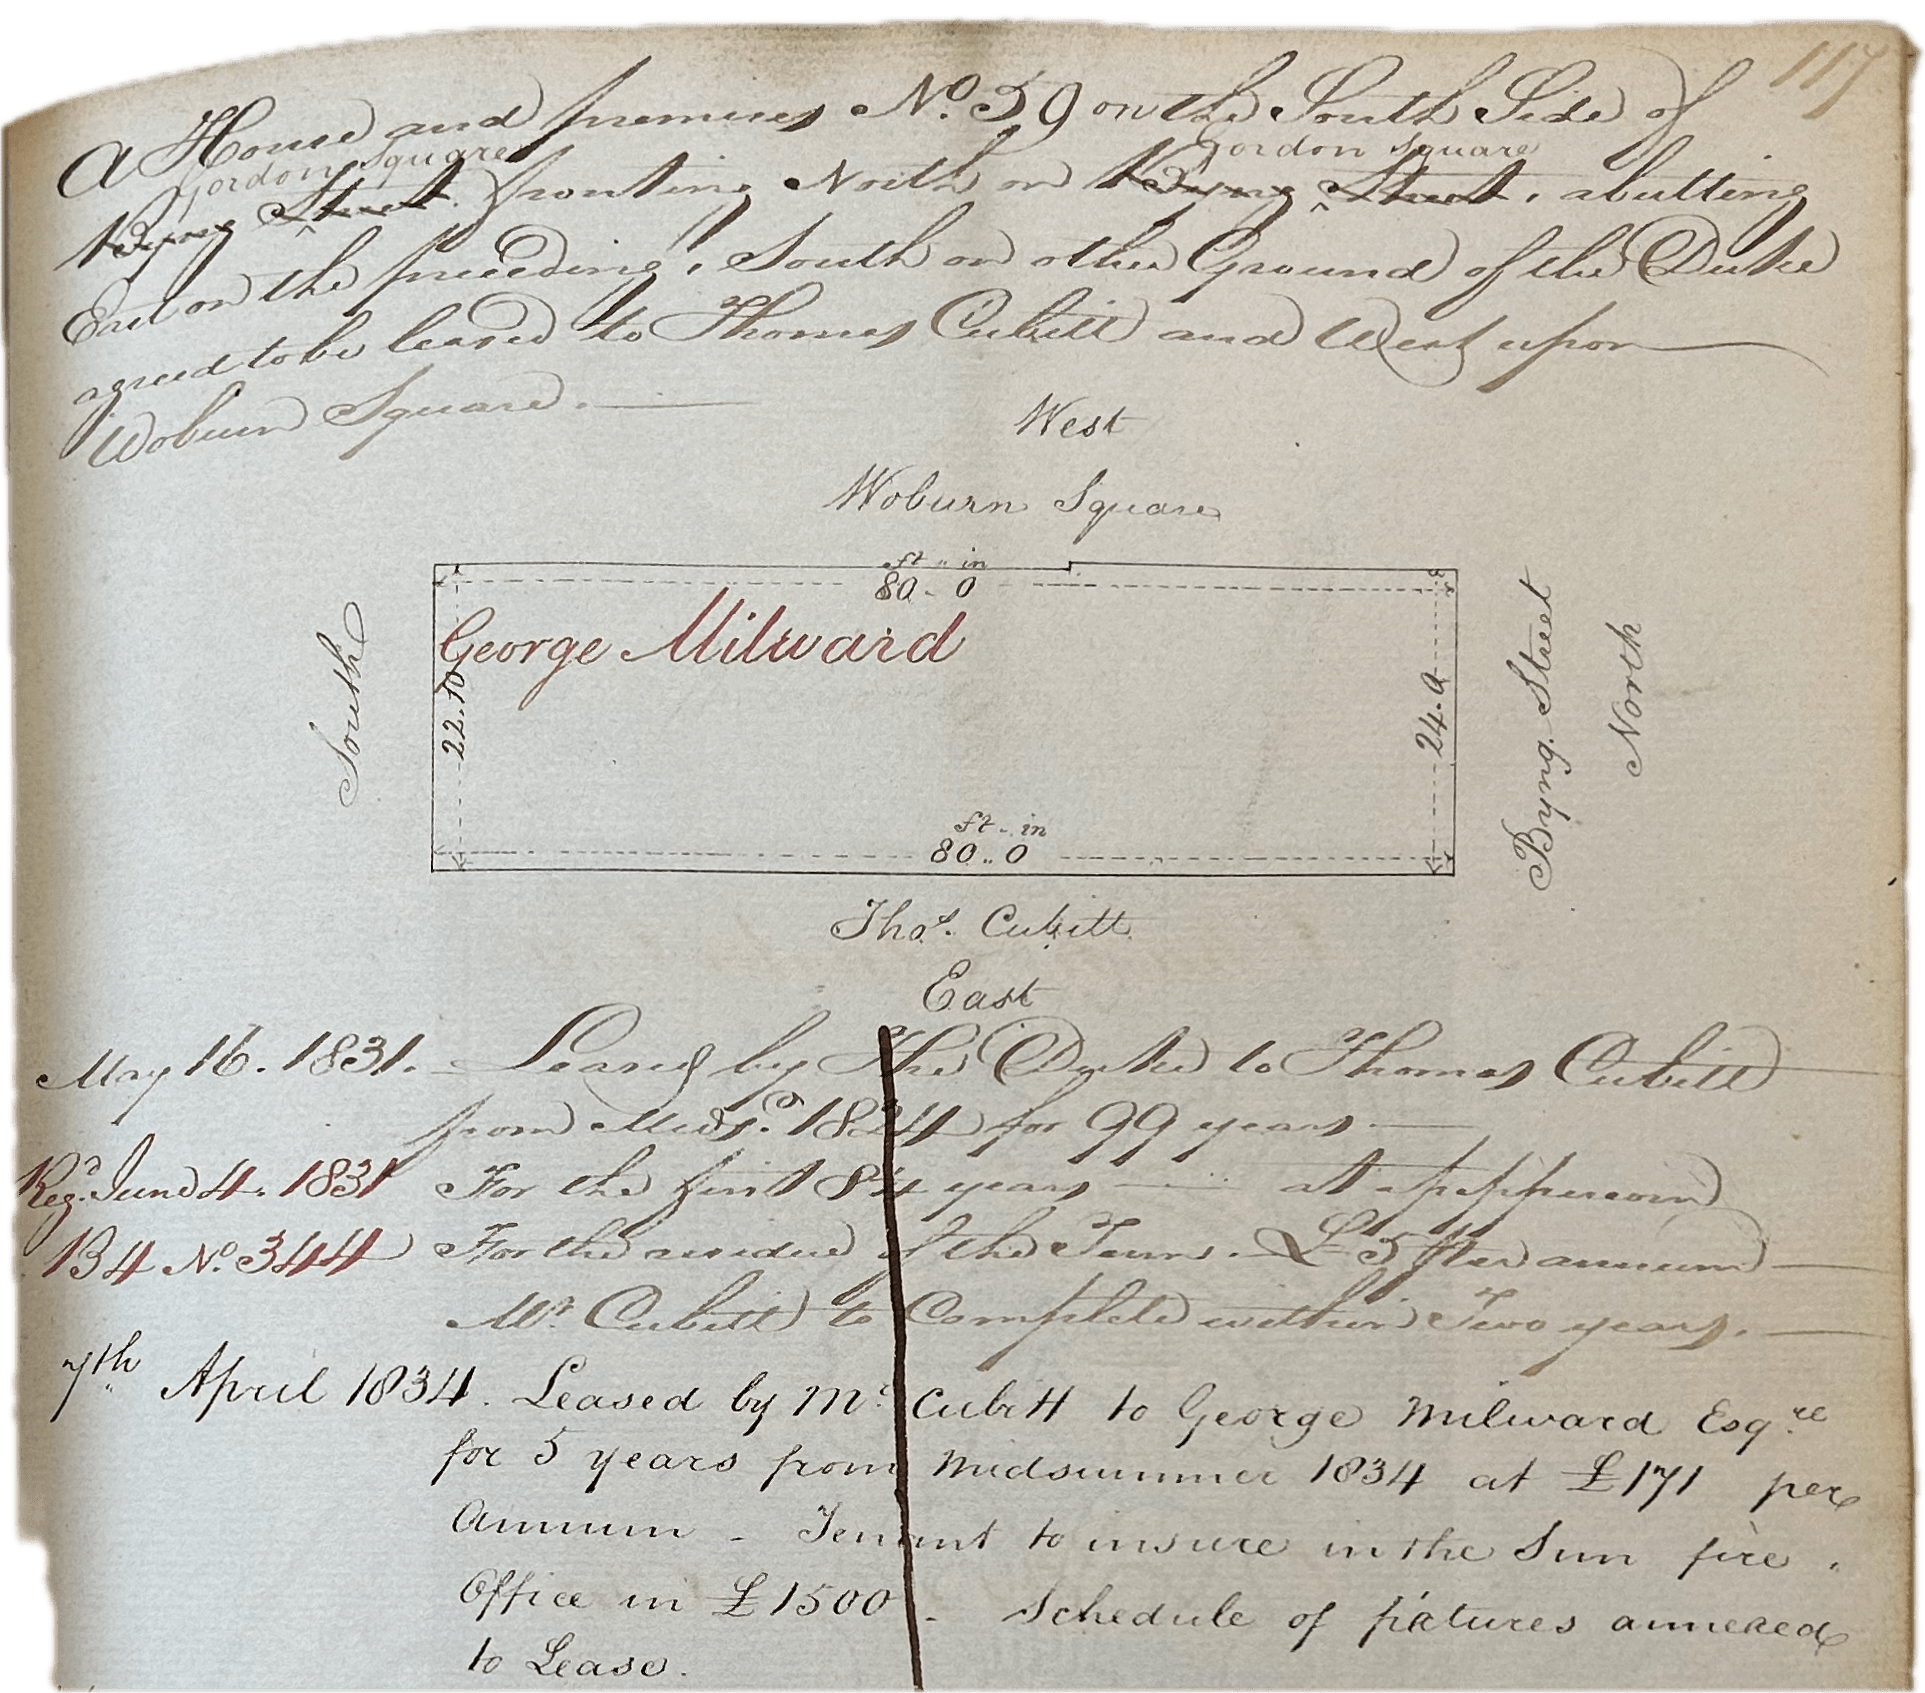 117
A House and premises No. 59 on the South Side of
Gordon Square Gordon Square
Byng Street. fronting North on Byng Street, abutting
East on the preceding, South on other Ground of the Duke
agreed to be leased to Thomas Cubitt and West upon
Woburn Square.
West
Woburn Square
ft .. in
80 - 0
George Milward
South
22.10
24.9
Byng Street
North
ft .. in
80 .. 0
Thos. Cubitt
East
May 16. 1831. Leased by The Duke to Thomas Cubitt
from Midsr. 1824 for 99 years
Regd. June 4. 1831 For the first 84 years at a peppercorn
B4 No. 344 For the residue of the Term. £5 per annum
Mr. Cubitt to Complete within Two years.
7th April 1834. Leased by Mr. Cubitt to George Milward Esqre
for 5 years from Midsummer 1834 at £171 per
Annum - Tenant to insure in the Sun fire
Office in £1500 - Schedule of fixtures annexed
to Lease.